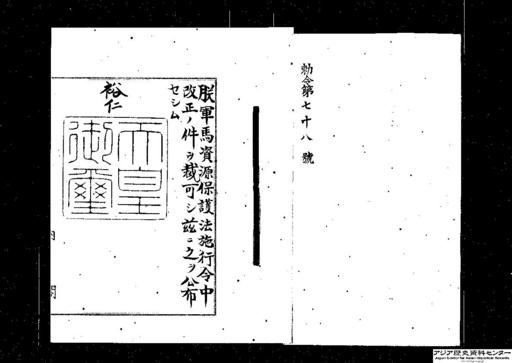 勅令第七十八號
朕軍馬資源保護法施行令中
改正ノ件ヲ裁可シ茲ニ之ヲ公布
セシム
裕仁
天皇
御璽
内閣
アジア歴史資料センター
Japan Center for Asian Historical Records